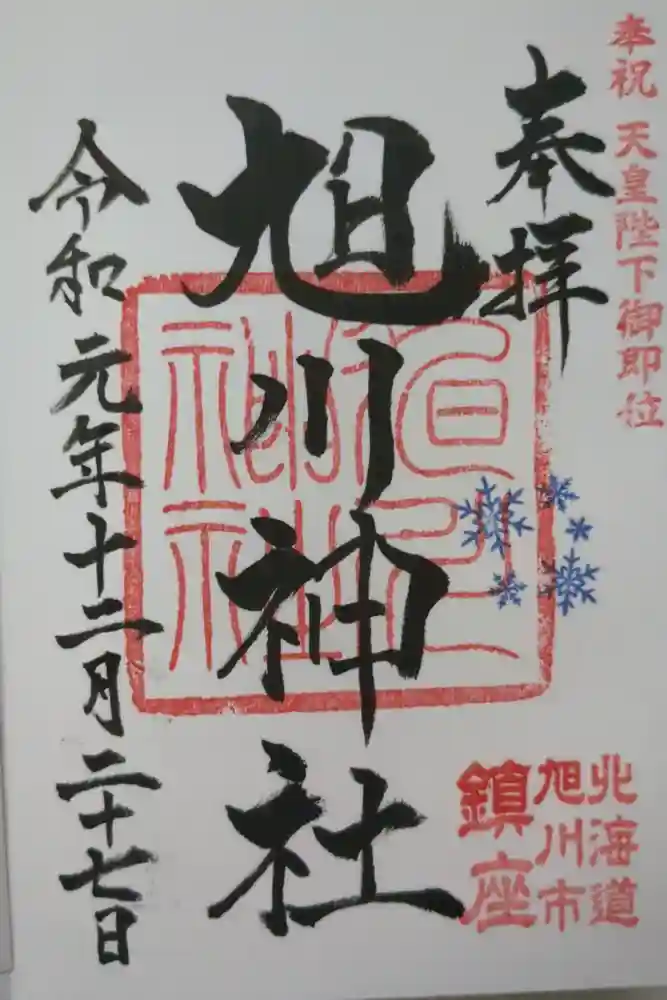 奉祝 天皇陛下御即位
奉拝
旭川神社
令和元年十二月二十七日
北海道
旭川市
鎮座